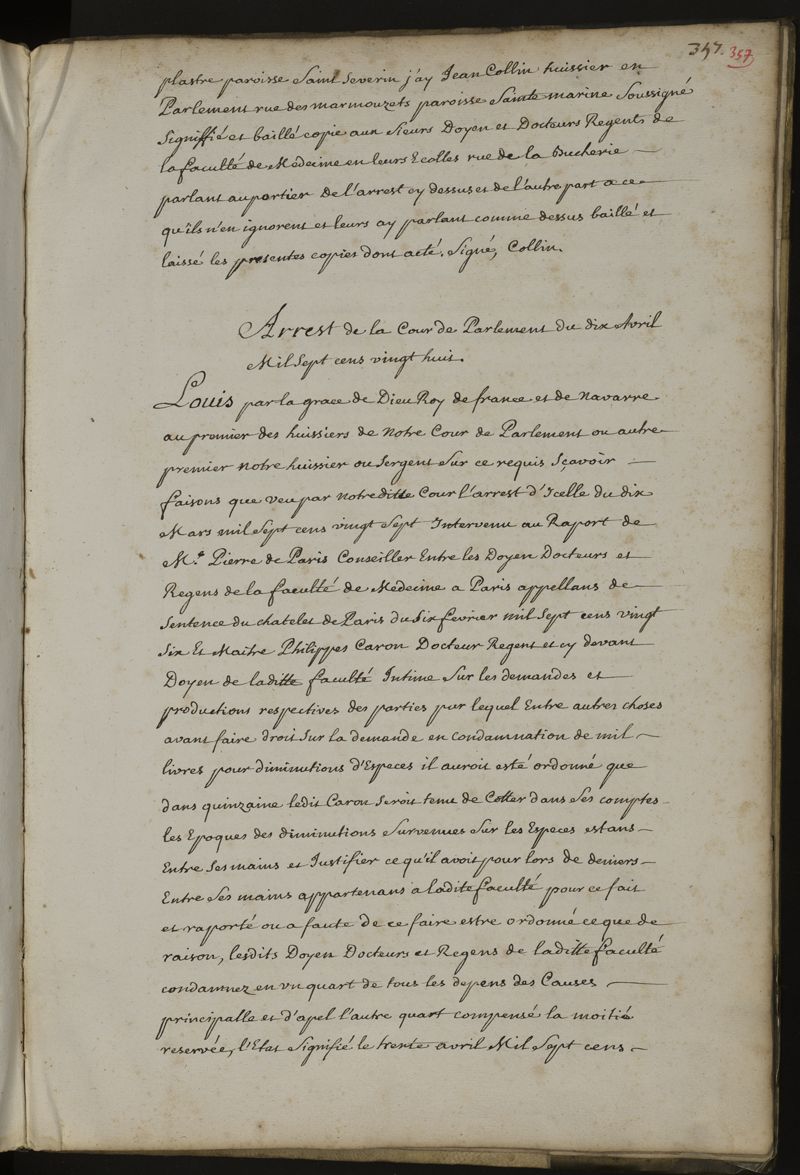 357. 357
plastre paroisse Saint Severin j'ay Jean Collin huissier en
Parlement rue des marmouzets paroisse Sainte marine Soussigné
Signiffié et baillé copie aux Sieurs Doyen et Docteurs Regents de
la faculté de Médecine en leurs Ecolles rue de la Bucherie —
parlant au portier De l'arrest cy dessus et de l'autre part a ce
qu'ils n'en ignorent et leurs ay parlant comme dessus baillé et
laissé les presentes copies dont acté. Signé, Collin.
Arrest de la Cour de Parlement du dix Avril
Mil Sept cens vingt huit.
Louis par la grace de Dieu Roy de france et de Navarre
au premier des huissiers de Notre Cour de Parlement ou autre
premier notre huissier ou Sergent Sur ce requis Sçavoir —
faisons que veu par notreditte Cour l'arrest d'Icelle du dix
Mars mil Sept cens vingt Sept Intervenu au Raport de
M.e Pierre de Paris Conseiller Entre les Doyen Docteurs et
Regens de la faculté de Medecine a Paris appellans de
Sentence du chatelet de Paris du Six fevrier mil Sept cens vingt
Six Et Maitre Philippes Caron Docteur Regent et cy devant
Doyen de laditte faculté Intime Sur les demandes et
productions respectives des parties par lequel Entre autres choses
avant faire droit Sur la demande en condamnation de mil —
livres pour diminutions d'Especes il auroit esté ordonné que
dans quinzaine ledit Caron Seroit tenu de Cotter dans Ses comptes
les Epoques des diminutions Survenues Sur les Especes estans —
Entre Ses mains et Justifier ce qu'il avoit pour lors de deniers —
Entre Ses mains appartenans a ladite faculté pour ce fait
et raporté ou a faute de ce faire estre ordonné ce que de
raison, lesdits Doyen Docteurs et Regens de laditte faculté
condamnez en un quart de tous les depens des Causes —
principalle et d'apel l'autre quart compensé la moitié
reservée, l'Etat Signifié le trente avril Mil Sept cens —